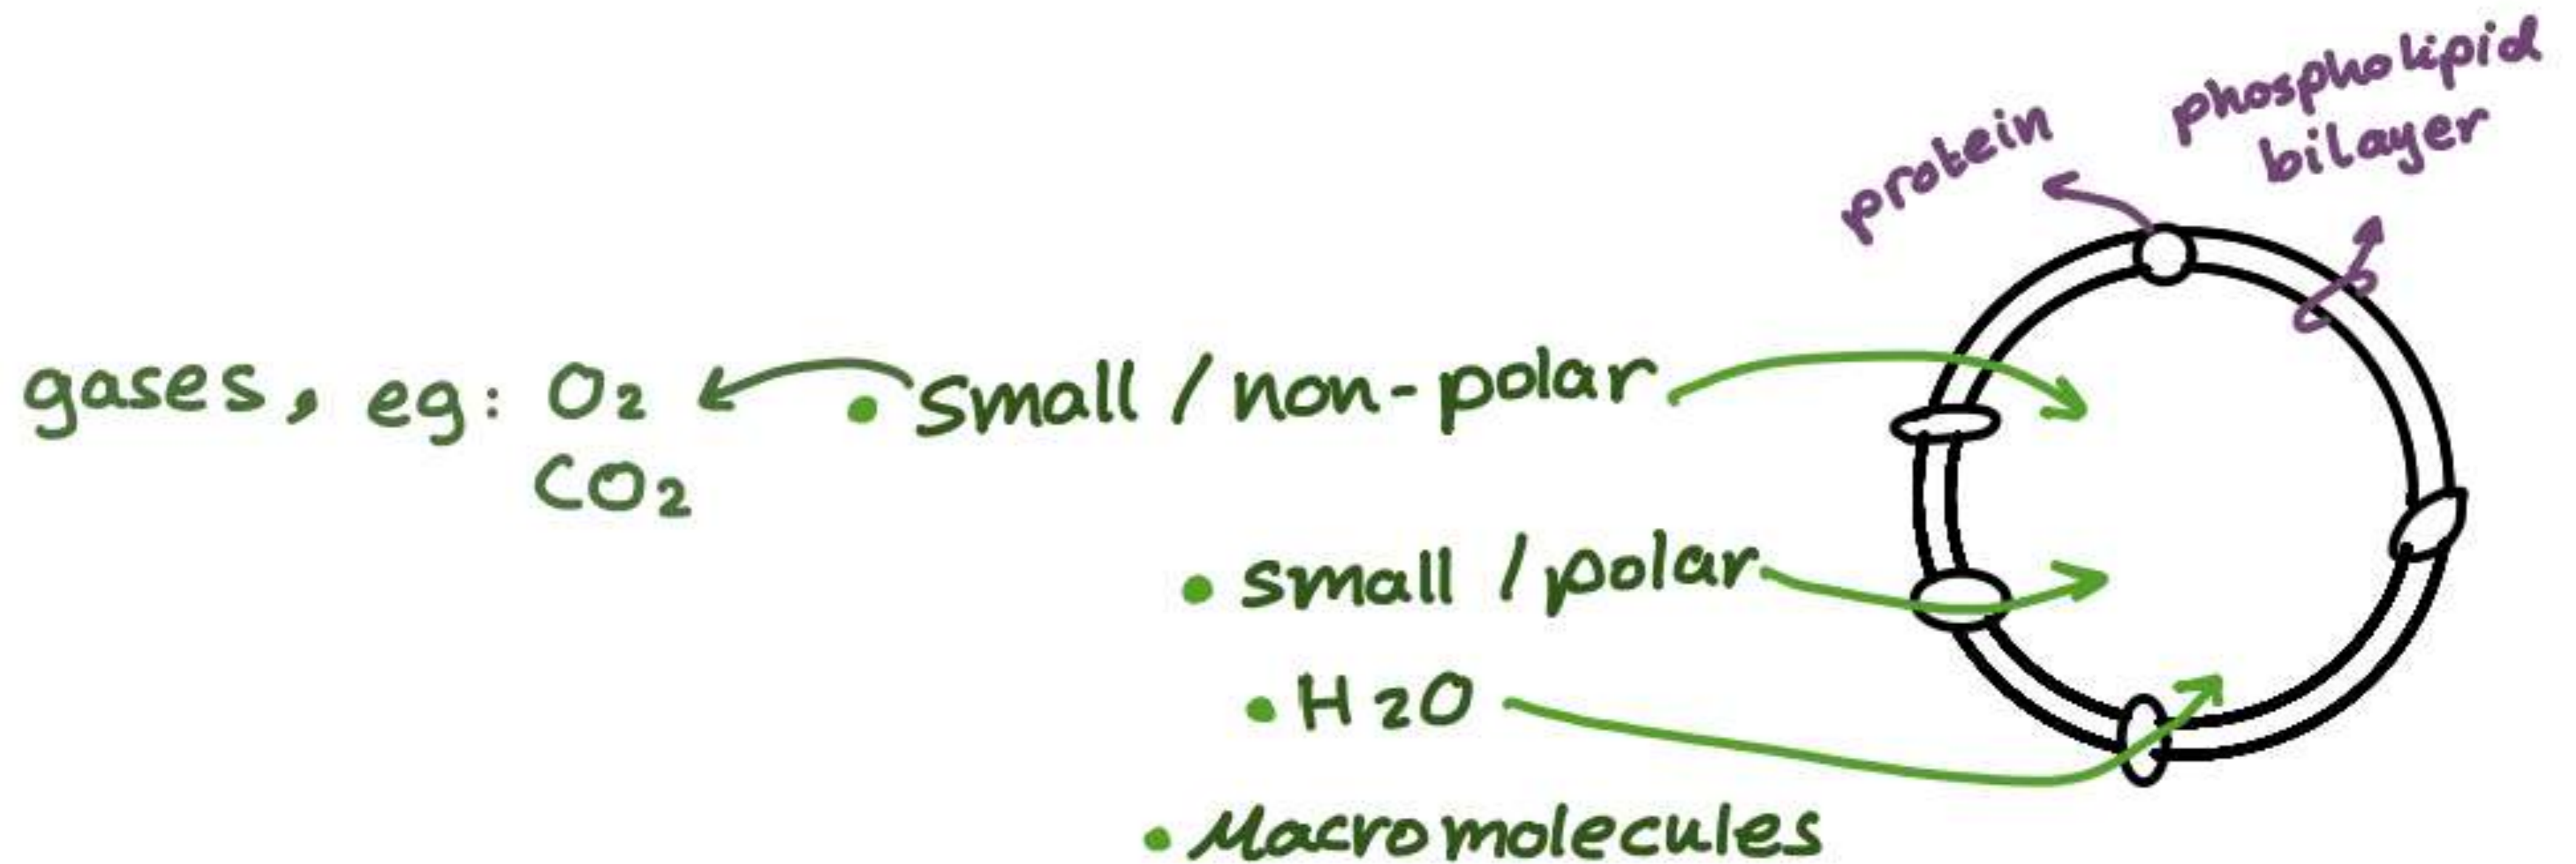 protein
phospholipid
bilayer
gases, eg: O2
CO2
• Small / non-polar
• small / polar
• H2O
• Macromolecules